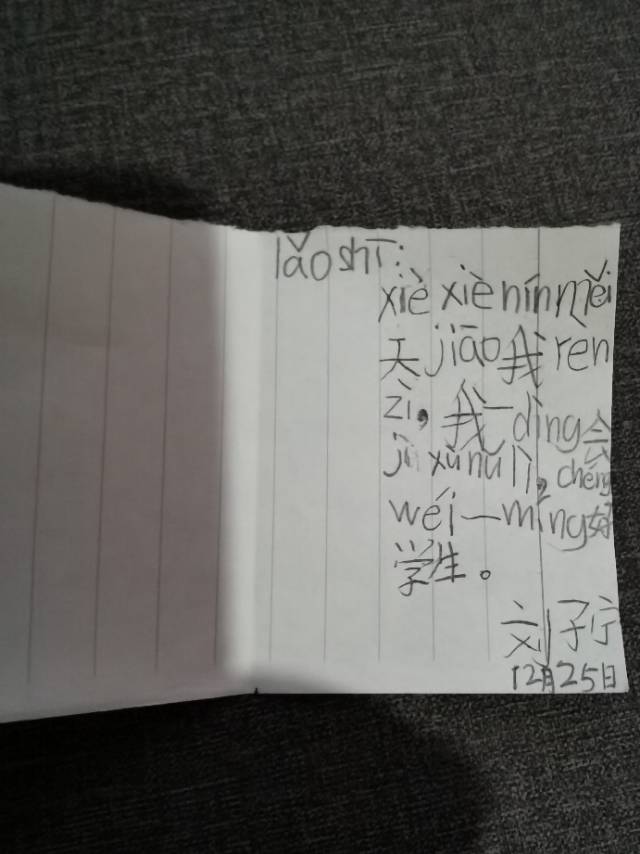 lǎo shī:
xiè xiè nín měi
天 jiāo 我 rèn
zì, 我一 dìng 会
jì xù nǔ lì, chéng
wéi 一 míng 好
学生。
刘子宁
12月25日